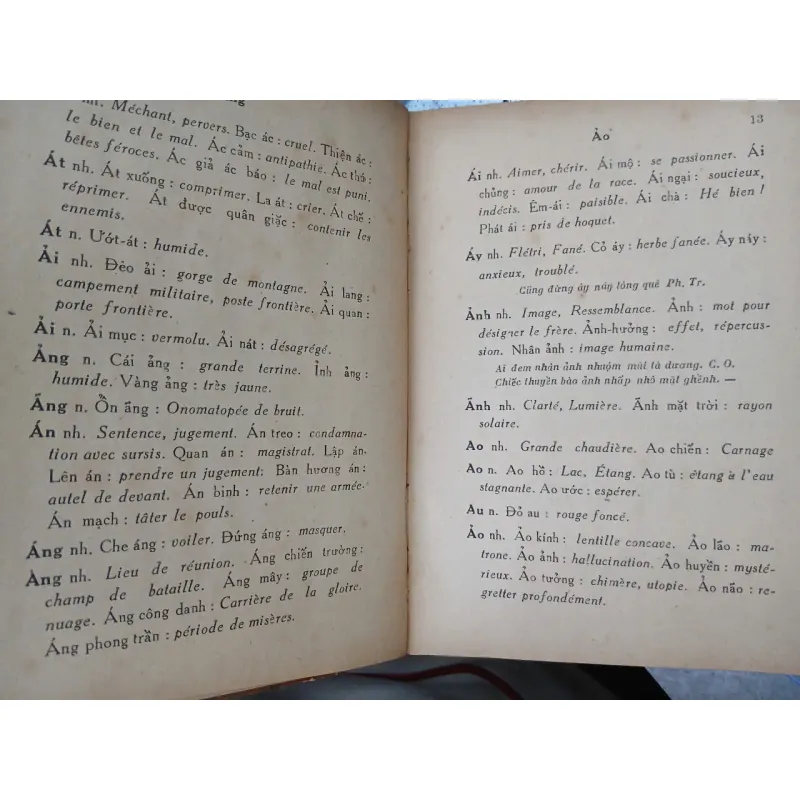 nh. Méchant, pervers. Bạc ác : cruel. Thiện ác :
le bien et le mal. Ác cảm : antipathie. Ác thú :
bêtes féroces. Ác giả ác báo : le mal est puni.
Át nh. Át xuống : comprimer. La át : crier. Át chế :
réprimer. Át được quân giặc : contenir les
ennemis.
Át n. Ướt-át : humide.
Ải nh. Đèo ải : gorge de montagne. Ải lang :
campement militaire, poste frontière. Ải quan :
porte frontière.
Ải n. Ải mục : vermolu. Ải nát : désagrégé.
Ảng n. Cái ảng : grande terrine. Ỉnh ảng :
humide. Vàng ảng : très jaune.
Ẳng n. Ồn ẳng : Onomatopée de bruit.
Án nh. Sentence, jugement. Án treo : condamna-
tion avec sursis. Quan án : magistrat. Lập án.
Lên án : prendre un jugement. Bàn hương án :
autel de devant. Án binh : retenir une armée.
Án mạch : tâter le pouls.
Áng nh. Che áng : voiler. Đứng áng : masquer.
Áng nh. Lieu de réunion. Áng chiến trường :
champ de bataille. Áng mây : groupe de
nuage. Áng công danh : Carrière de la gloire.
Áng phong trần : période de misères.
13
Ảo
Ái nh. Aimer, chérir. Ái mộ : se passionner. Ái
chủng : amour de la race. Ái ngại : soucieux,
indécis. Êm-ái : paisible. Ái chà : Hé bien !
Phát ái : pris de hoquet.
Áy nh. Flétri, Fané. Cỏ áy : herbe fanée. Áy náy :
anxieux, troublé.
Cũng đừng áy náy lòng quê Ph. Tr.
Ảnh nh. Image, Ressemblance. Ảnh : mot pour
désigner le frère. Ảnh-hưởng : effet, répercus-
sion. Nhân ảnh : image humaine.
Ai đem nhân ảnh nhuộm mùi tà dương. C. O.
Chiếc thuyền bào ảnh nhấp nhô mặt ghềnh. —
Ãnh nh. Clarté, Lumière. Ãnh mặt trời : rayon
solaire.
Ao nh. Grande chaudière. Ao chiến : Carnage
Ao n. Ao hồ : Lac, Étang. Ao tù : étang à l'eau
stagnante. Ao ước : espérer.
Au n. Đỏ au : rouge foncé.
Ảo nh. Ảo kính : lentille concave. Ảo lão : ma-
trone. Ảo ảnh : hallucination. Ảo huyền : mysté-
rieux. Ảo tưởng : chimère, utopie. Ảo não : re-
gretter profondément.